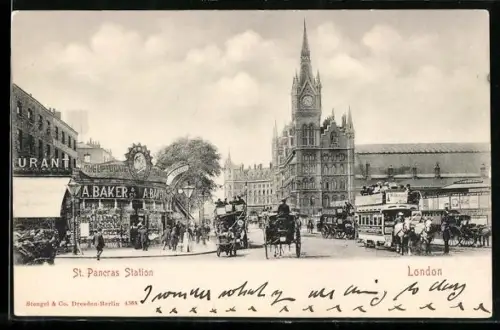 URANT
A. BAKER
St. Pancras Station
London
Stengel & Co. Dresden-Berlin
I wonder what you are doing to day
x x x x x x x x x x x